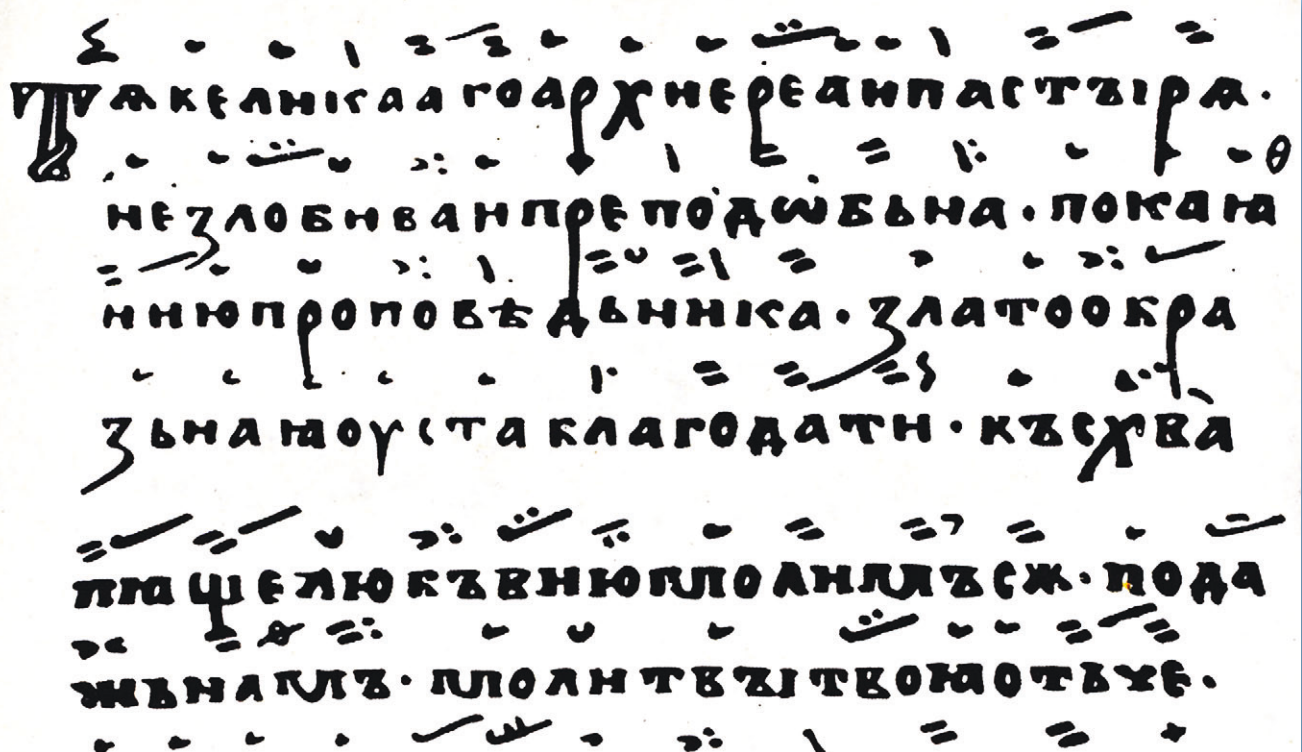 Тѧ великааго архиереа и пастꙑрѧ·
незлобива и препод́ѡ́бьна· покаꙗ
нию проповѣдьника· златоѡбра
зьнаꙗ оуста благодати· въсхва
лꙗще любъвию молимъ сѫ· пода
жь намъ· молитвꙑ твоꙗ отьче·